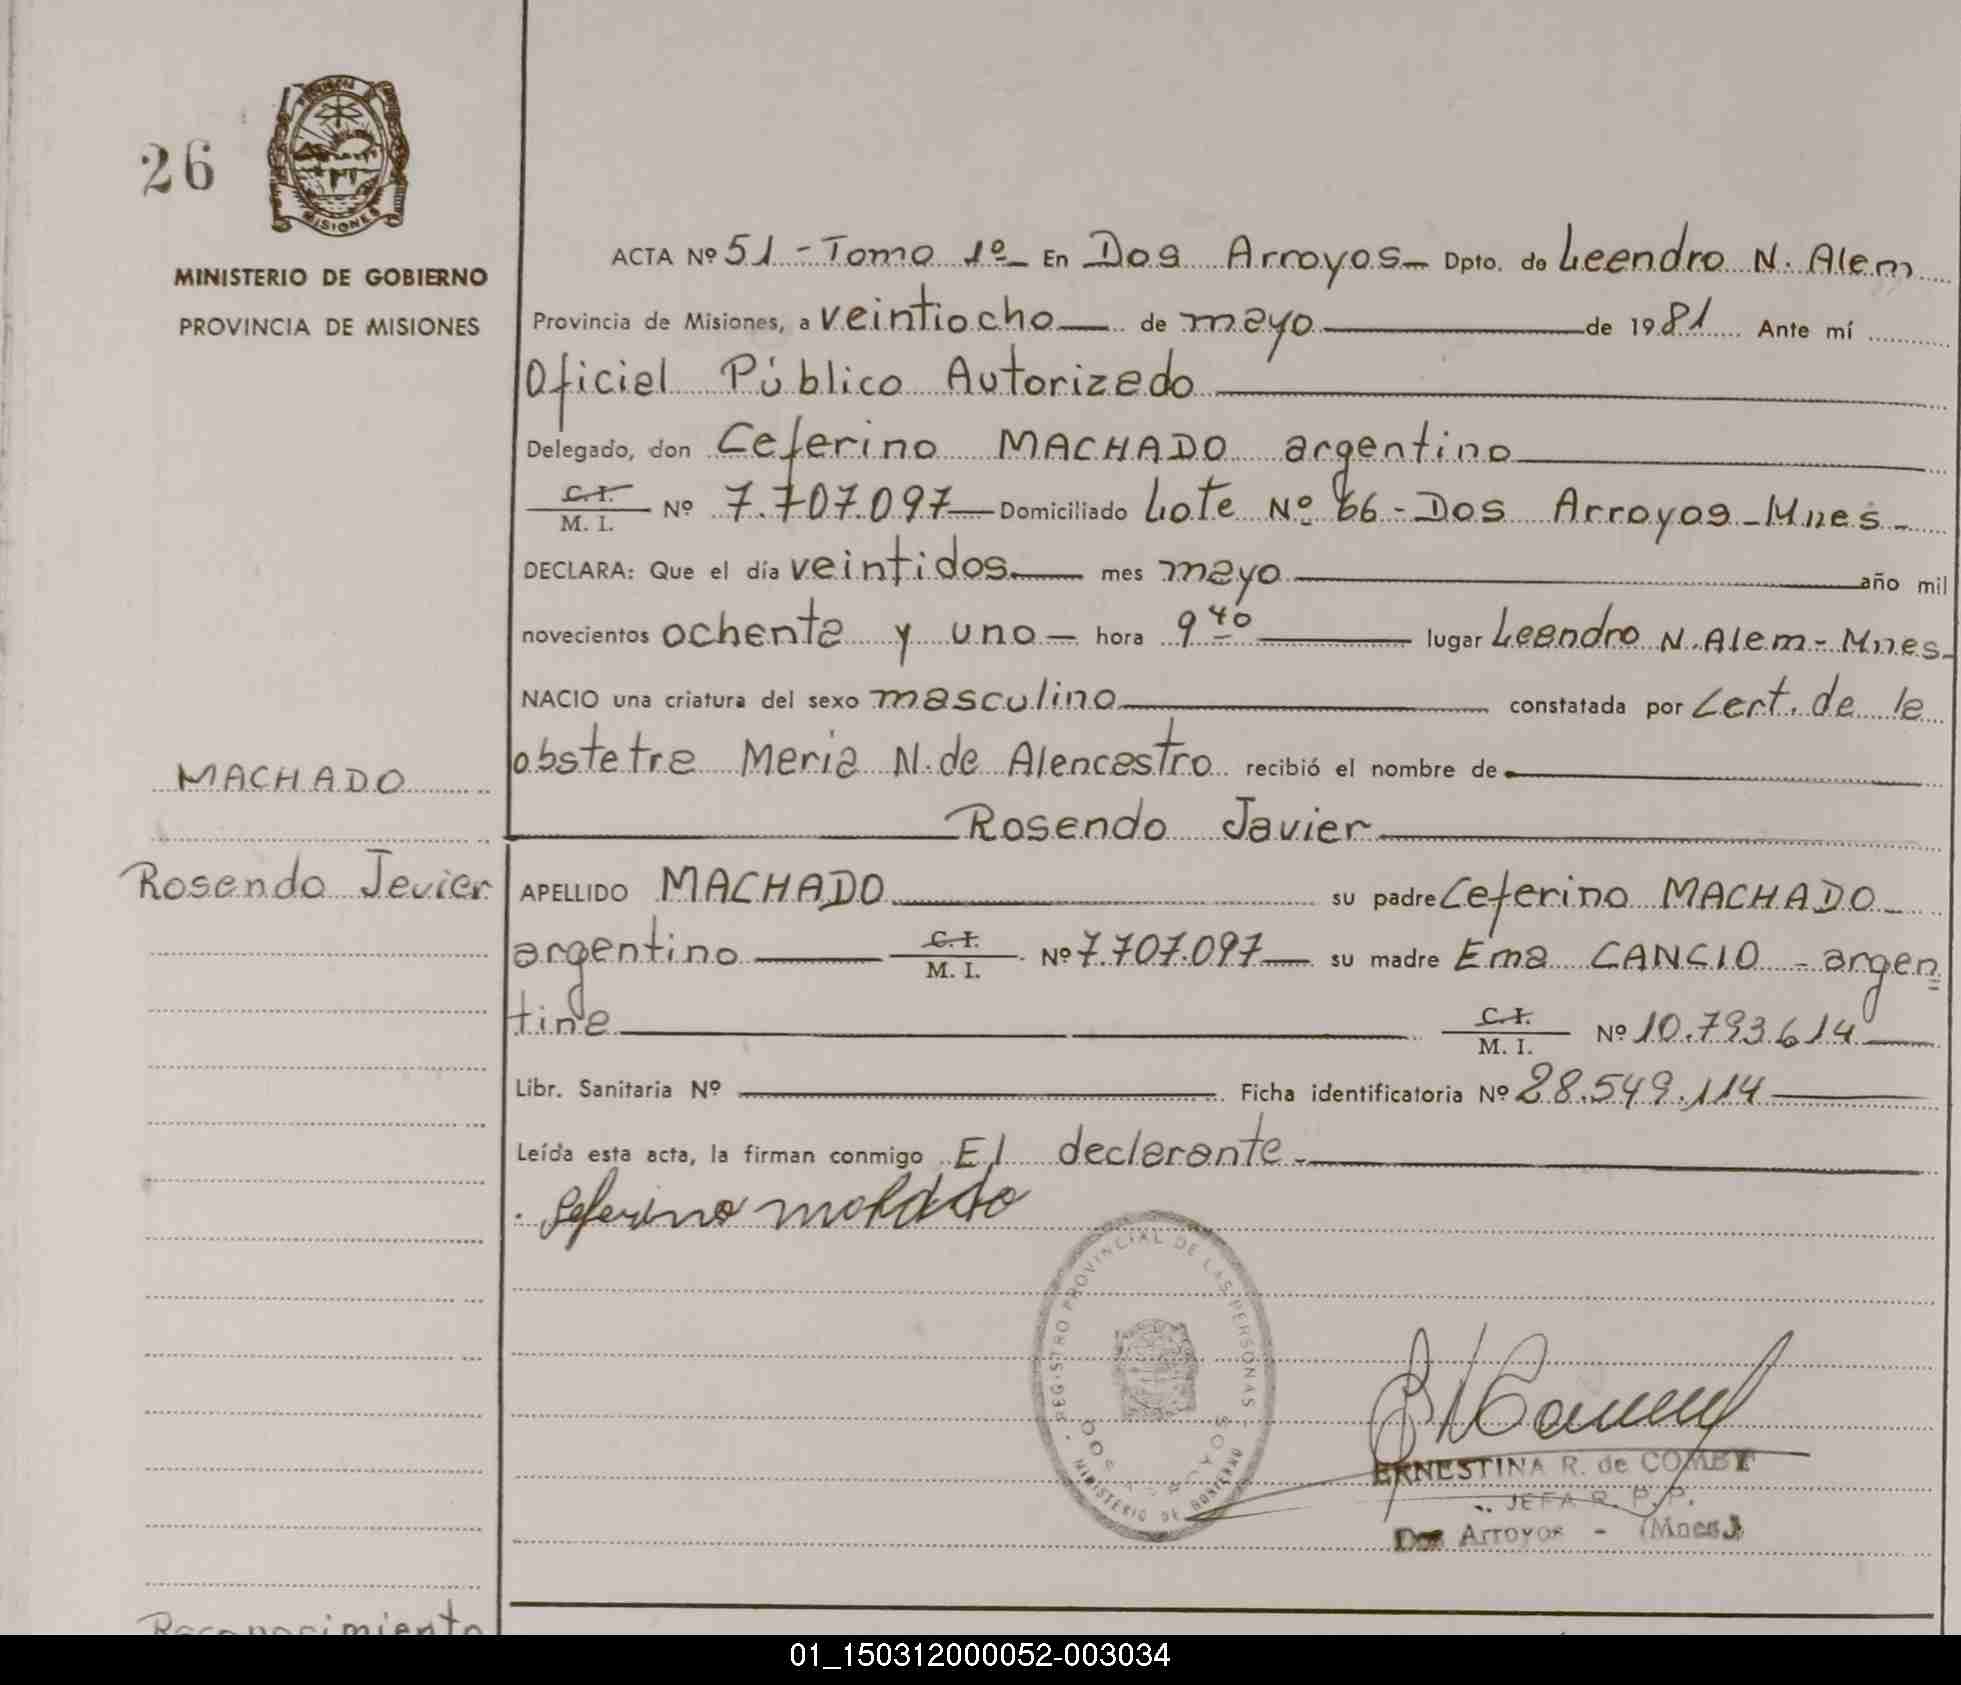 26
MISIONES
MINISTERIO DE GOBIERNO
PROVINCIA DE MISIONES
ACTA Nº 51 - Tomo 1º - En Dos Arroyos - Dpto. de Leandro N. Alem
Provincia de Misiones, a veintiocho de mayo de 1981 Ante mí
Oficial Público Autorizado
Delegado, don Ceferino MACHADO argentino
C. I. M. I. Nº 7.707.097 - Domiciliado Lote Nº 66 - Dos Arroyos - Mnes -
DECLARA: Que el día veintidos mes mayo año mil
novecientos ochenta y uno - hora 9 40 lugar Leandro N. Alem - Mnes -
NACIO una criatura del sexo masculino constatada por Cert. de la
obstetra Maria N. de Alencastro recibió el nombre de
Rosendo Javier
MACHADO
Rosendo Javier
APELLIDO MACHADO su padre Ceferino MACHADO -
argentino C. I. M. I. Nº 7.707.097 - su madre Ema CANCIO - argen
tina C. I. M. I. Nº 10.793.614
Libr. Sanitaria Nº Ficha identificatoria Nº 28.549.114
Leída esta acta, la firman conmigo El declarante -
REGISTRO PROVINCIAL DE LAS PERSONAS
DOS
MINISTERIO DE GOBIERNO
ERNESTINA R. de COMBY
JEFA R. P. P.
Dos Arroyos - (Mnes.)
Reconocimiento
01_150312000052-003034